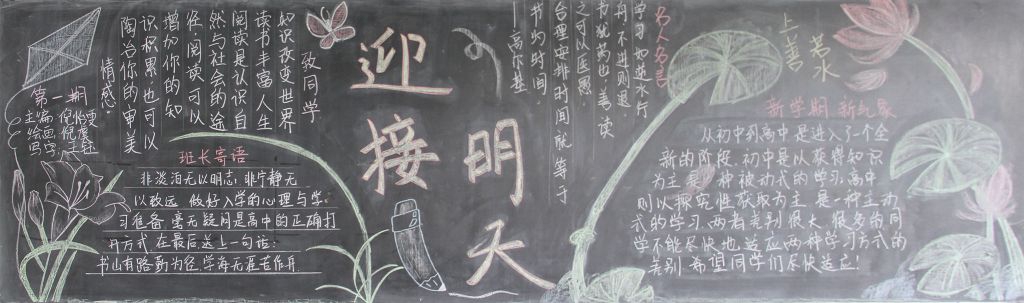 迎接
明天
致同学
知识改变世界
读书丰富人生
阅读是认识自
然与社会的途
径阅读可以
增加你的知
识积累也可以
陶冶你的审美
情感。
第一期
主编:
绘画:
写字:
班长寄语
非淡泊无以明志,非宁静无
以致远 做好入学的心理与学
习准备 毫无疑问是高中的正确打
开方式 在最后送上一句话:
书山有路勤为径 学海无涯苦作舟
名人名言
学习如逆水行
舟,不进则退
书犹药也,善读
之可以医愚。
合理安排时间就等于
节约时间
——高尔基
上善若水
新学期 新气象
从初中到高中是进入了个全
新的阶段.初中是以获得知识
为主 是一种被动式的学习,高中
则以探究性获取为主 是一种主动
式的学习.两者差别很大 很多的同
学不能尽快地适应两种学习方式的
差别 希望同学们尽快适应!